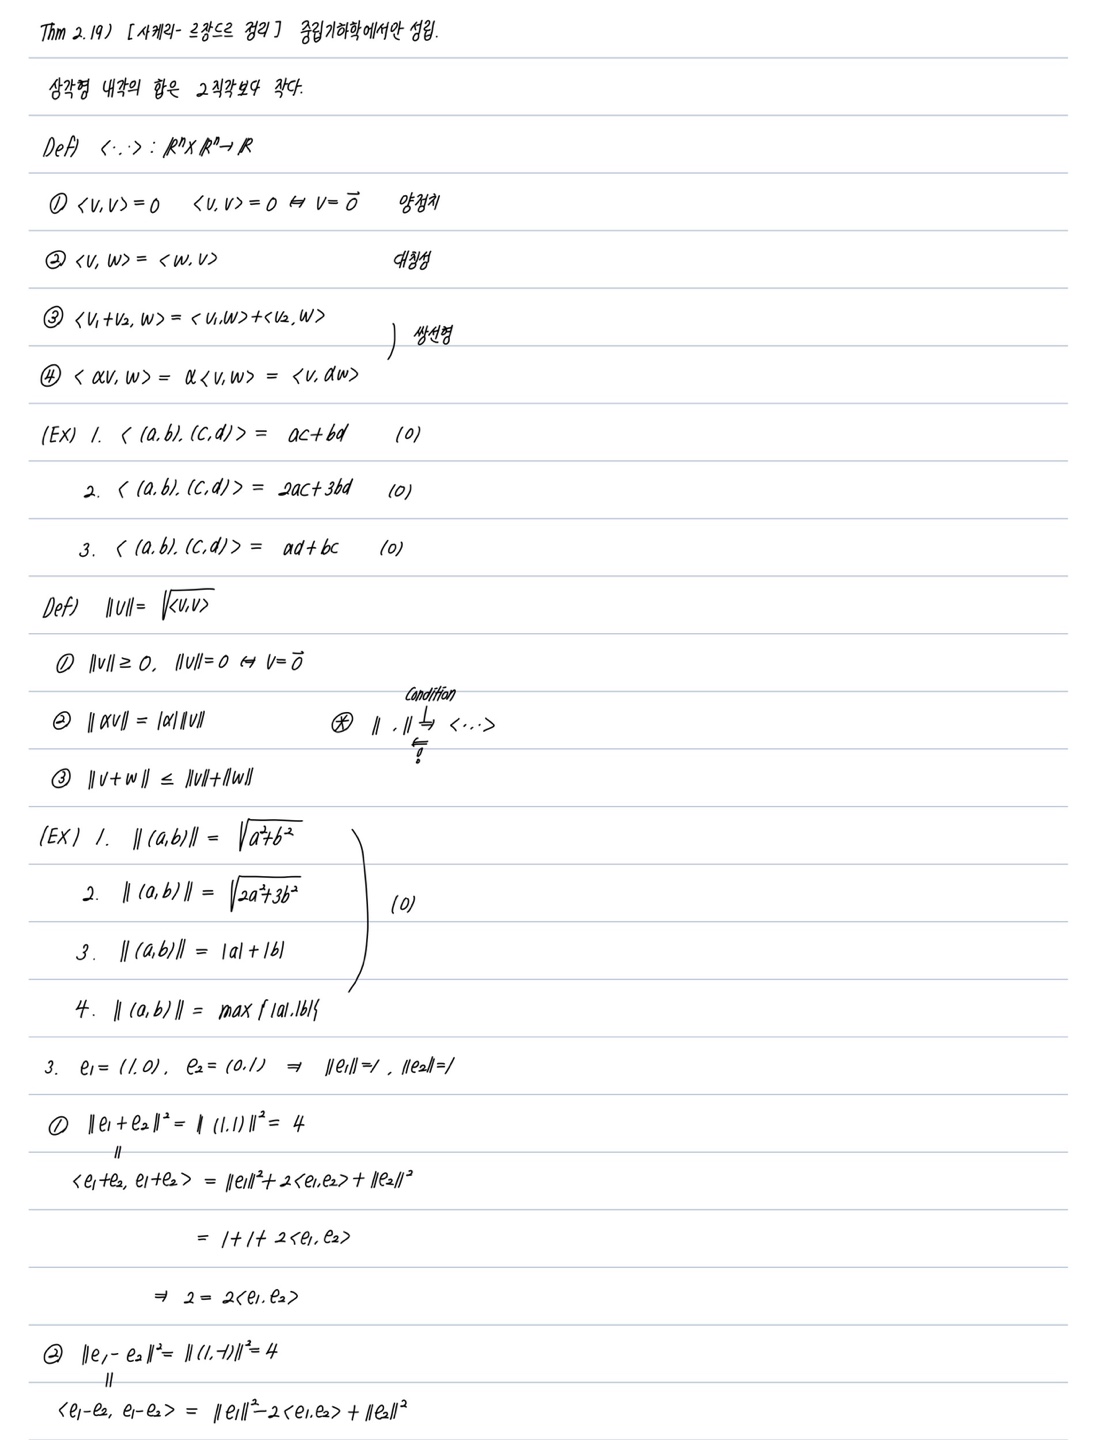 Thm 2.19) [사케리-르장드르 정리] 중립기하학에서만 성립.
삼각형 내각의 합은 2직각보다 작다.
Def) <·,·> : ℝⁿ×ℝⁿ→ℝ
① <v,v>=0 <v,v>=0 ⇔ v=0⃗ 양정치
② <v,w> = <w,v> 대칭성
③ <v₁+v₂,w> = <v₁,w>+<v₂,w>
) 쌍선형
④ <αv,w> = α<v,w> = <v,αw>
(Ex) 1. <(a,b),(c,d)> = ac+bd (O)
2. <(a,b),(c,d)> = 2ac+3bd (O)
3. <(a,b),(c,d)> = ad+bc (O)
Def) ||v|| = √<v,v>
① ||v|| ≥ 0, ||v||=0 ⇔ v=0⃗
Condition
② ||αv|| = |α|||v|| ⊛ ||·|| ⇒ <·,·>
⇐
!
③ ||v+w|| ≤ ||v||+||w||
(Ex) 1. ||(a,b)|| = √a²+b²
2. ||(a,b)|| = √2a²+3b² (O)
3. ||(a,b)|| = |a|+|b|
4. ||(a,b)|| = max{|a|,|b|}
3. e₁=(1,0), e₂=(0,1) ⇒ ||e₁||=1, ||e₂||=1
① ||e₁+e₂||² = ||(1,1)||² = 4
||
<e₁+e₂, e₁+e₂> = ||e₁||²+2<e₁,e₂>+||e₂||²
= 1+1+2<e₁,e₂>
⇒ 2 = 2<e₁,e₂>
② ||e₁-e₂||² = ||(1,-1)||² = 4
||
<e₁-e₂, e₁-e₂> = ||e₁||²-2<e₁,e₂>+||e₂||²